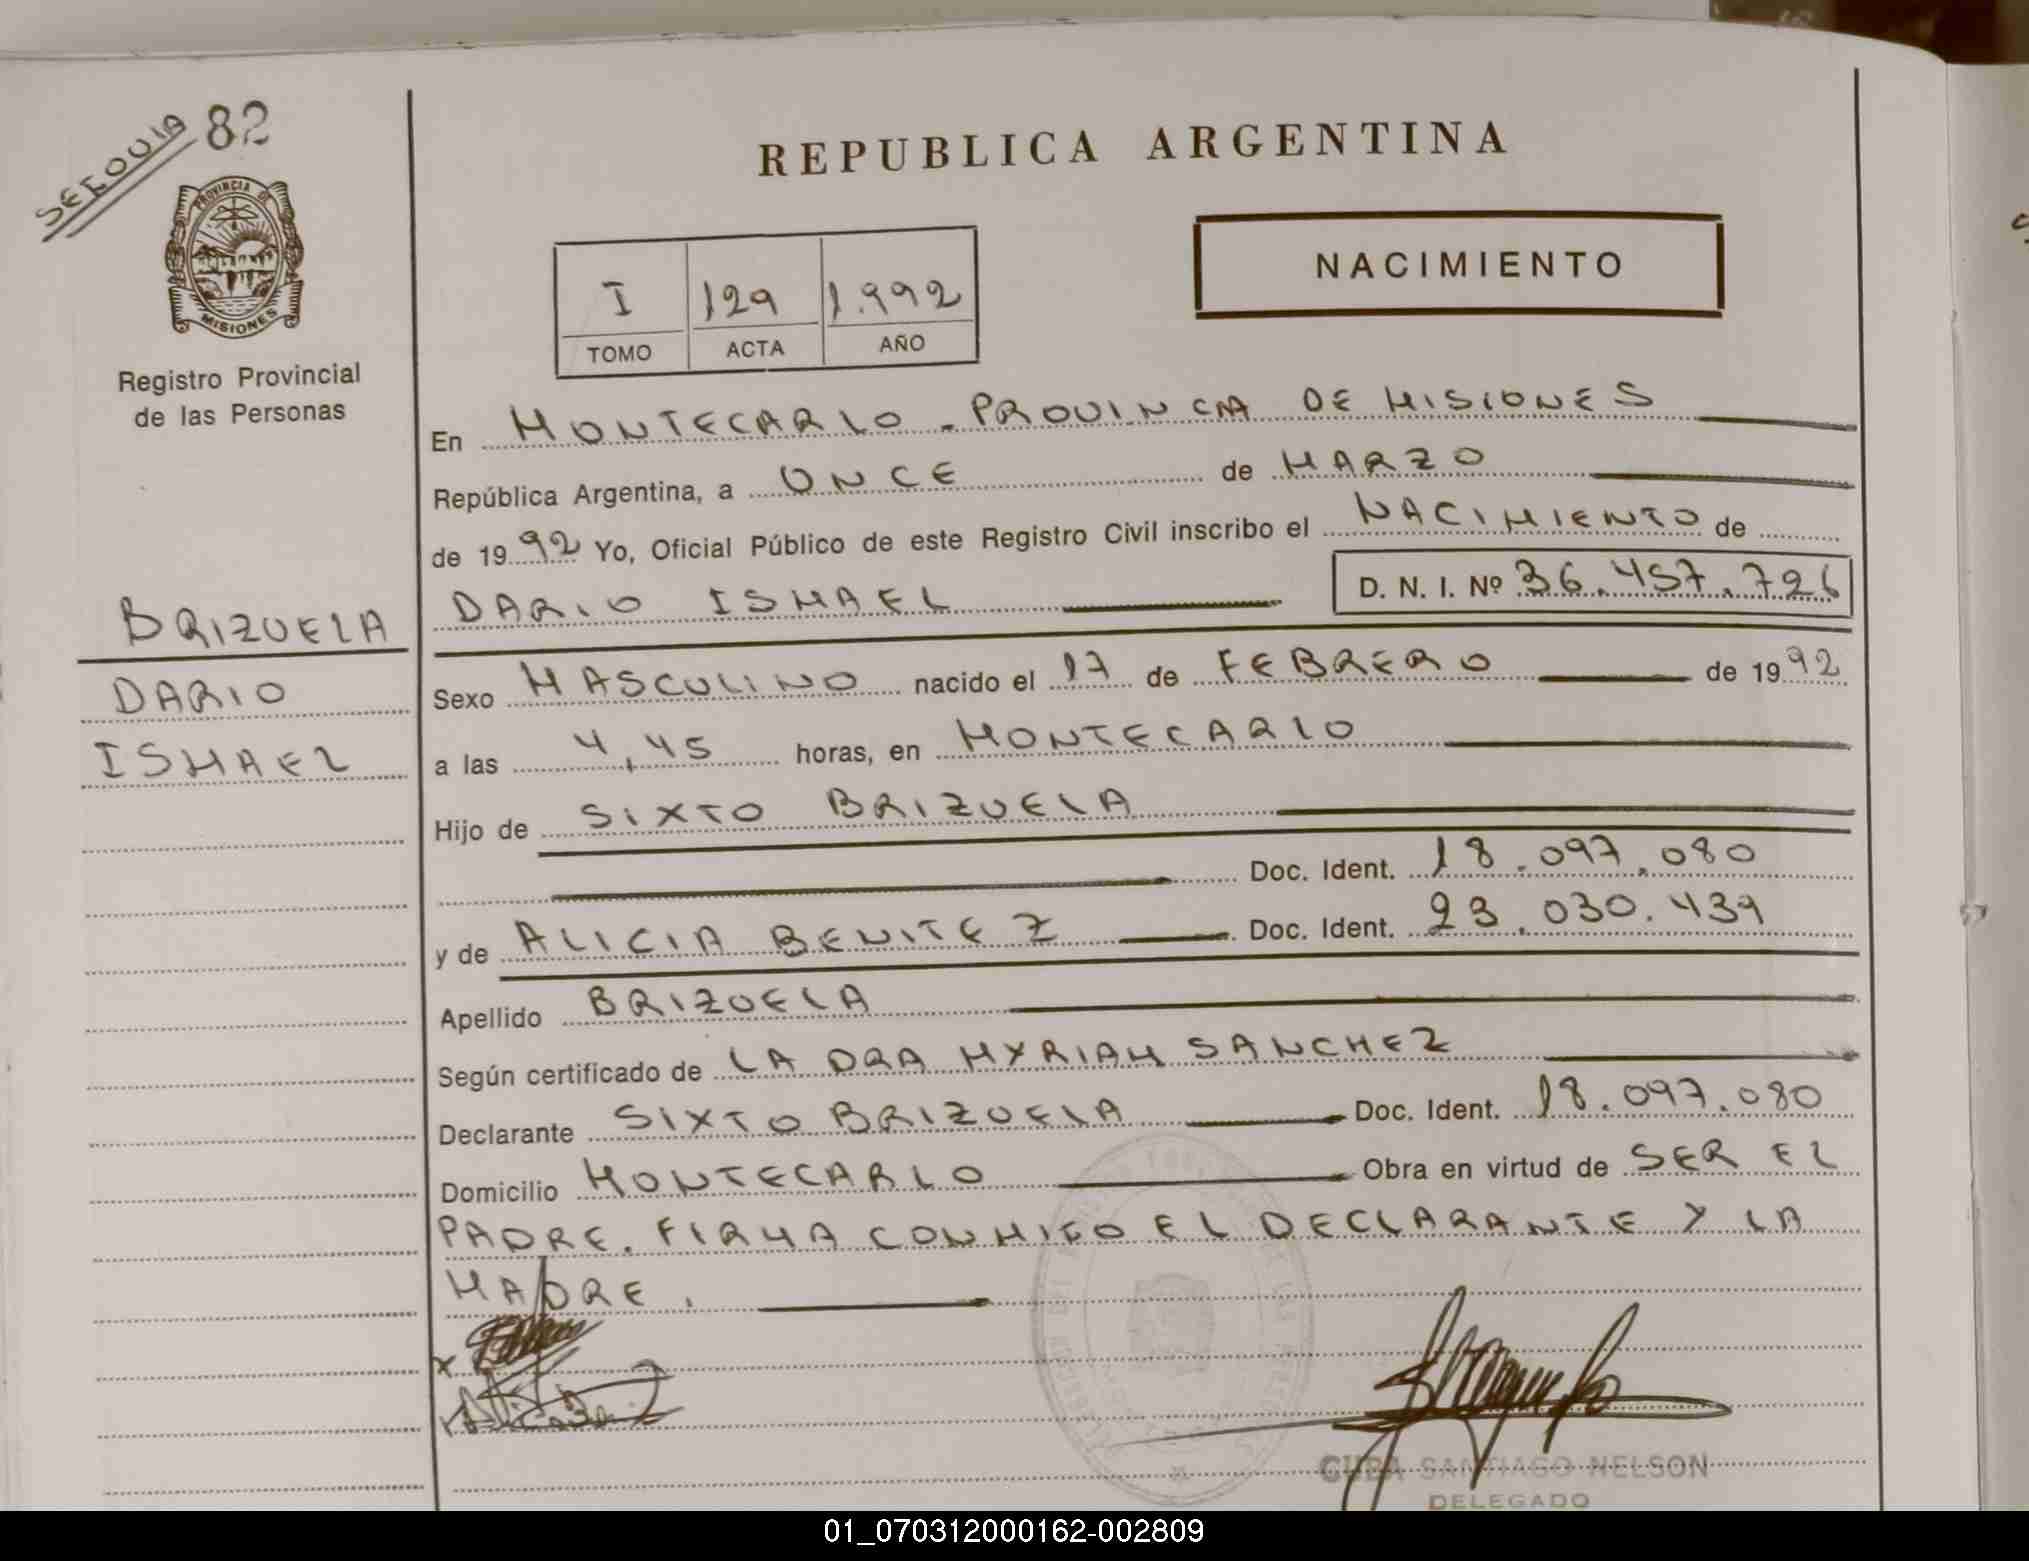 SEROVIA 82
PROVINCIA DE
MISIONES
Registro Provincial
de las Personas
BRIZUELA
DARIO
ISMAEL
REPUBLICA ARGENTINA
I 129 1.992
TOMO ACTA AÑO
NACIMIENTO
En MONTECARLO. PROVINCIA DE MISIONES
República Argentina, a ONCE de MARZO
de 1992 Yo, Oficial Público de este Registro Civil inscribo el NACIMIENTO de
DARIO ISMAEL D. N. I. Nº 36.457.726
Sexo MASCULINO nacido el 17 de FEBRERO de 1992
a las 4,45 horas, en MONTECARLO
Hijo de SIXTO BRIZUELA
Doc. Ident. 18.097.080
y de ALICIA BENITEZ Doc. Ident. 23.030.439
Apellido BRIZUELA
Según certificado de LA DRA MYRIAM SANCHEZ
Declarante SIXTO BRIZUELA Doc. Ident. 18.097.080
Domicilio MONTECARLO Obra en virtud de SER EL
PADRE. FIRMA CONMIGO EL DECLARANTE Y LA
MADRE.
SANTIAGO NELSON
DELEGADO
01_070312000162-002809